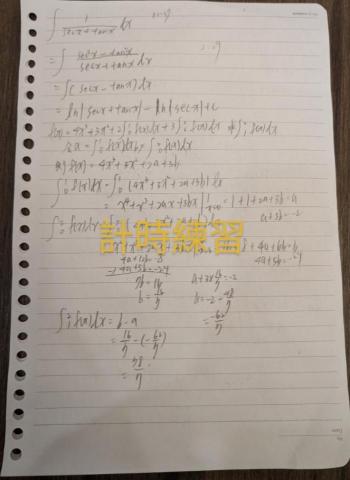 ∫ 1/(secx+tanx) dx
= ∫ (sec²x - tan²x)/(secx+tanx) dx
= ∫ (secx - tanx) dx
= ln|secx+tanx| - ln|secx| + c
f(x) = 4x³+3x²+2∫₀¹ f(x)dx + 3∫₀² f(x)dx 求 ∫₁² f(x)dx
f(x) = 4x³+3x²+2a+3b
∫₀¹ f(x)dx = ∫₀¹ (4x³+3x²+2a+3b) dx
= x⁴+x³+2ax+3bx |₀¹ = 1+1+2a+3b = a
a+3b = -2
∫₀² f(x)dx
計時練習
4a+5b = -24
7b = 16
b = 16/7
∫₁² f(x)dx = b - a
= 16/7 - (-62/7)
= 78/7